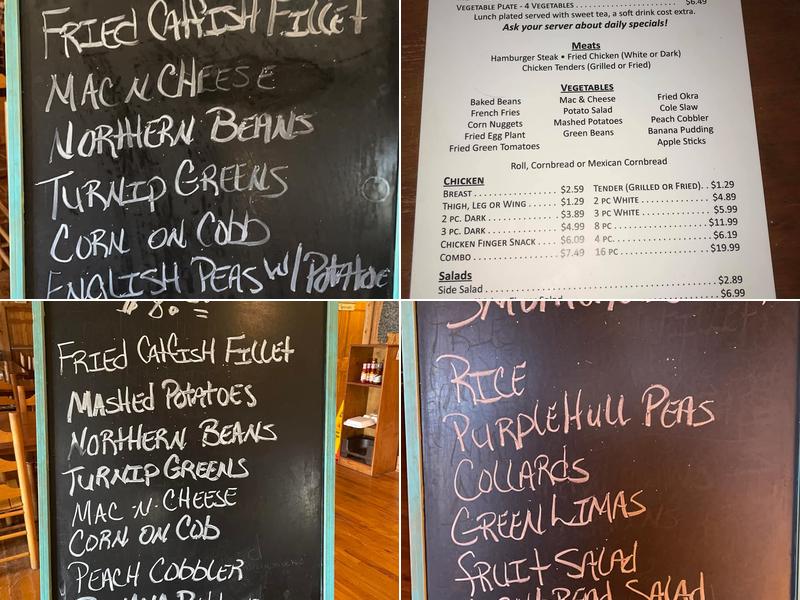 FRIED CATFISH FILLET
MAC N CHEESE
NORTHERN BEANS
TURNIP GREENS
CORN ON COBB
ENGLISH PEAS W/ POTATOE
VEGETABLE PLATE - 4 VEGETABLES . . . . . . . . . . . . . . . . . . . . . . . . $6.49
Lunch plated served with sweet tea, a soft drink cost extra.
Ask your server about daily specials!
Meats
Hamburger Steak • Fried Chicken (White or Dark)
Chicken Tenders (Grilled or Fried)
VEGETABLES
Baked Beans Mac & Cheese Fried Okra
French Fries Potato Salad Cole Slaw
Corn Nuggets Mashed Potatoes Peach Cobbler
Fried Egg Plant Green Beans Banana Pudding
Fried Green Tomatoes Apple Sticks
Roll, Cornbread or Mexican Cornbread
CHICKEN
BREAST . . . . . . . . . . . . . . . . $2.59 TENDER (GRILLED OR FRIED). . $1.29
THIGH, LEG OR WING . . . . . $1.29 2 PC WHITE . . . . . . . . . . . . . $4.89
2 PC. DARK . . . . . . . . . . . . . $3.89 3 PC WHITE . . . . . . . . . . . . . $5.99
3 PC. DARK . . . . . . . . . . . . . $4.99 8 PC . . . . . . . . . . . . . . . . . . $11.99
CHICKEN FINGER SNACK . . . . $6.09 4 PC. . . . . . . . . . . . . . . . . . . $6.19
COMBO . . . . . . . . . . . . . . . . $7.49 16 PC . . . . . . . . . . . . . . . . . $19.99
Salads
Side Salad . . . . . . . . . . . . . . . . . . . . . . . . . . . . . . . . . . . $2.89
$6.99
FRIED CATFISH FILLET
MASHED POTATOES
NORTHERN BEANS
TURNIP GREENS
MAC -N- CHEESE
CORN ON COB
PEACH COBBLER
RICE
PURPLE HULL PEAS
COLLARDS
GREEN LIMAS
FRUIT SALAD
SALAD